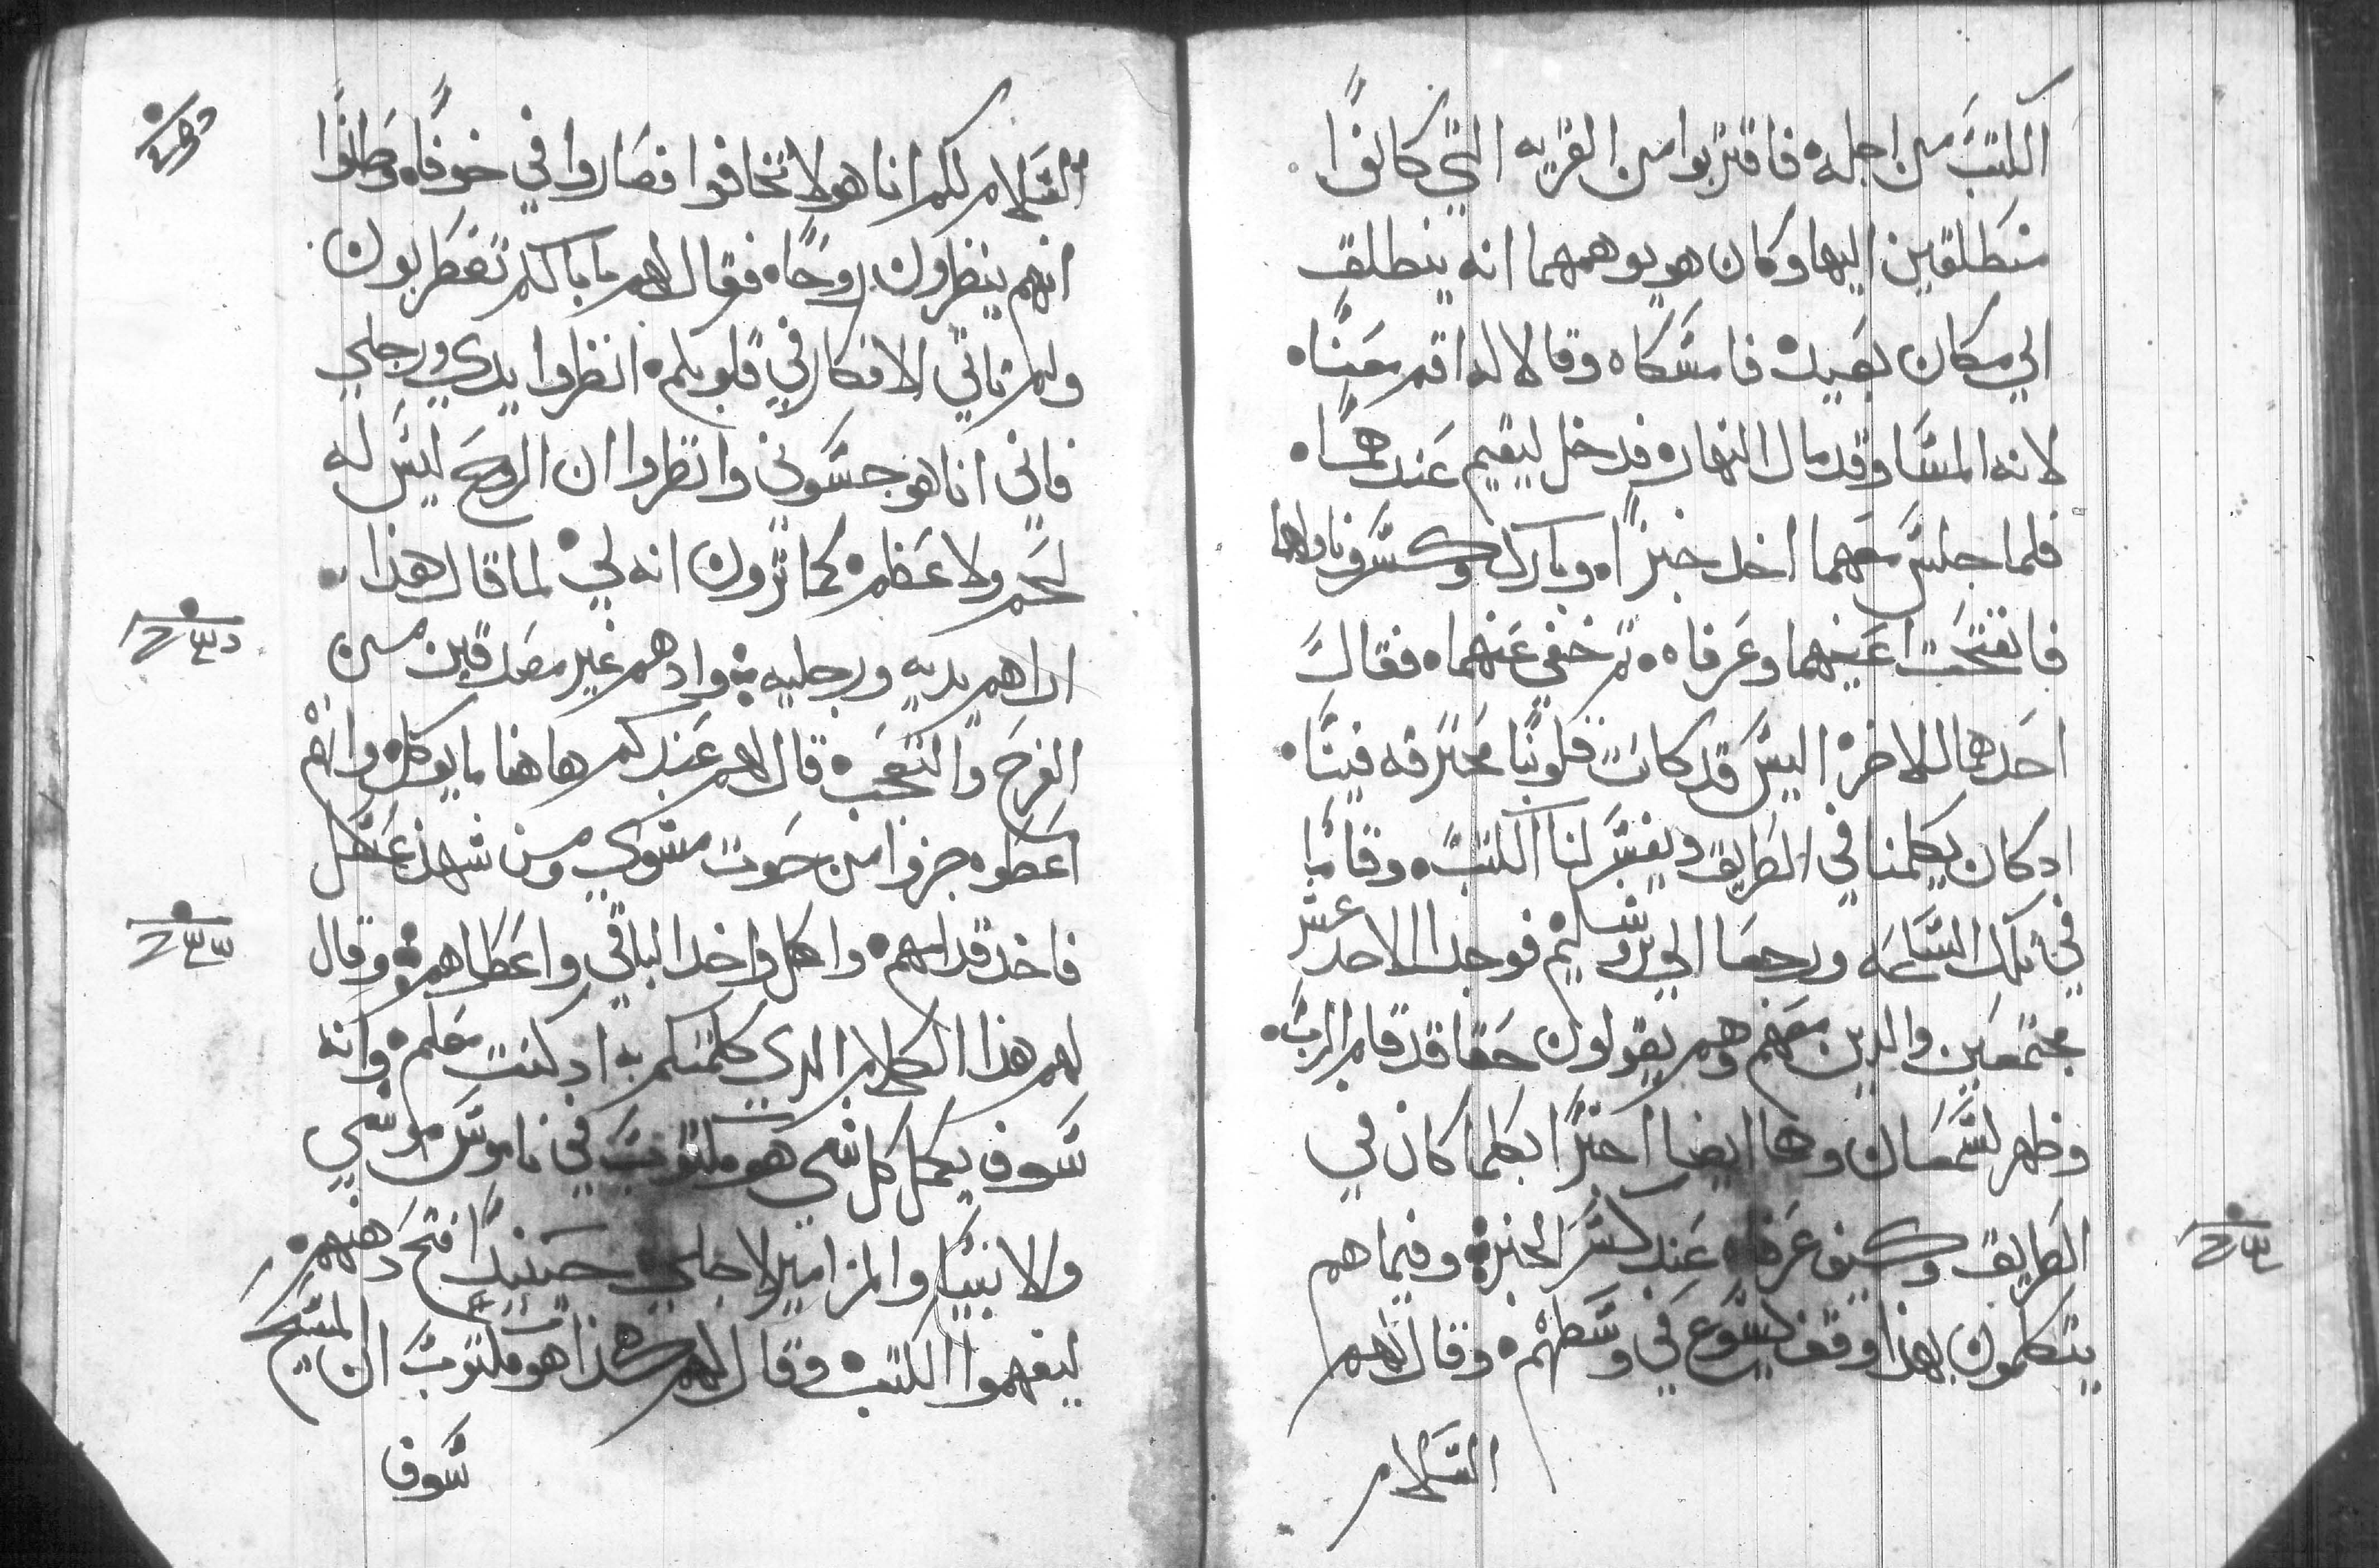 الكتب من اجله فاقتربوا من القريه التي كانوا
منطلقين اليها وكان هو يوهمهما انه ينطلق
الي مكان بعيد فامسكاه وقالا له اقم معنا
لانه المسا وقد مال النهار فدخل ليقيم عندهما
فلما جلس معهما اخد خبزا وبارك وكسر وناولهما
فانفتحت اعينهما وعرفاه ثم خفي عنهما فقال
احدهما للاخر اليس قد كانت قلوبنا محترقه فينا
اد كان يكلمنا في الطريق ويفسر لنا الكتب وقاما
في تلك الساعه ورجعا الي يروشليم فوجدا الاحد عشر
مجتمعين والدين معهم وهم يقولون حقا قد قام الرب
وظهر لسمعان وهما ايضا اخبرا بكلما كان في
الطريق وكيف عرفاه عند كسر الخبز وفيما هم
يتكلمون بهذا وقف يسوع في وسطهم وقال لهم
السلام
السلام لكم انا هو لا تخافوا فصاروا في خوف وظنوا
انهم ينظرون روحا فقال لهم ما بالكم تضطربون
ولم تاتي الافكار في قلوبكم انظروا يدي ورجلي
فاني انا هو جسوني وانظروا ان الروح ليس له
لحم ولا عظم كما ترون انه لي لما قال هذا
اراهم يديه ورجليه واد هم غير مصدقين من
الفرح والتعجب قال لهم عندكم هاهنا ما يوكل وانهم
اعطوه جزوا من حوت مشوي ومن شهد عسل
فاخد قدامهم واكل واخد الباقي واعطاهم وقال
لهم هذا الكلام الدي كلمتكم به اد كنت معكم وانه
سوف يكمل كل شي هو مكتوب في ناموس موسي
والانبيا والمزامير لاجلي حينيد افتح دهنهم
ليفهموا الكتب وقال لهم هكذا هو مكتوب ان المسيح
سوف